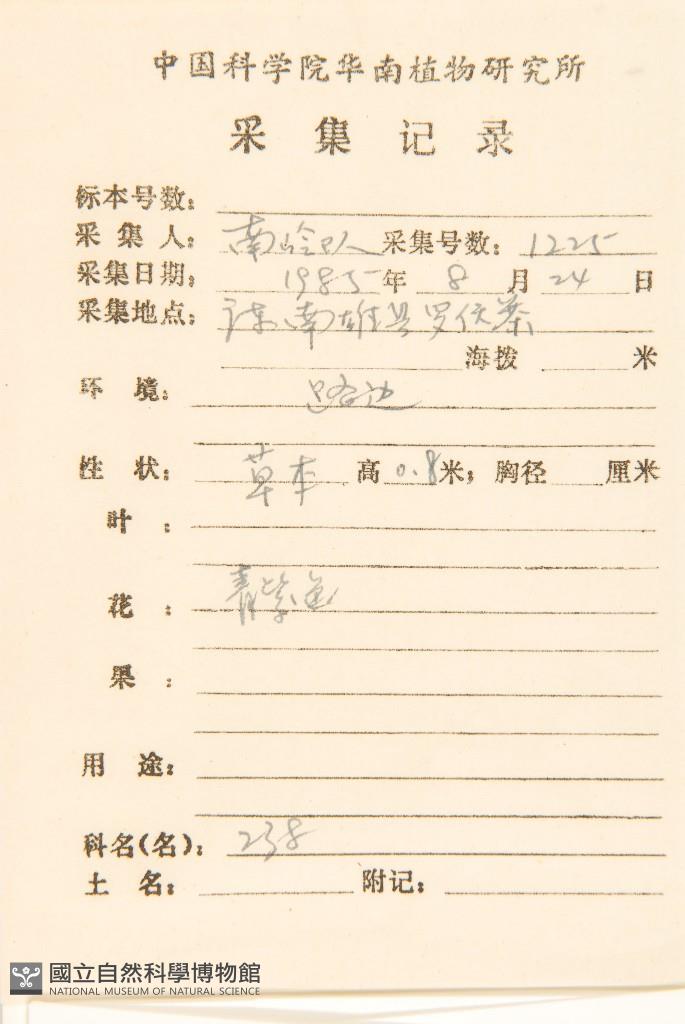 中国科学院华南植物研究所
采集记录
标本号数：
采集人：南岭队 采集号数：1225
采集日期：1985年8月24日
采集地点：广东南雄县罗伏寨
海拨 米
环境：路边
性状：草本 高0.8米；胸径 厘米
叶：
花：青紫色
果：
用途：
科名(名)：238
土名： 附记：
國立自然科學博物館
NATIONAL MUSEUM OF NATURAL SCIENCE